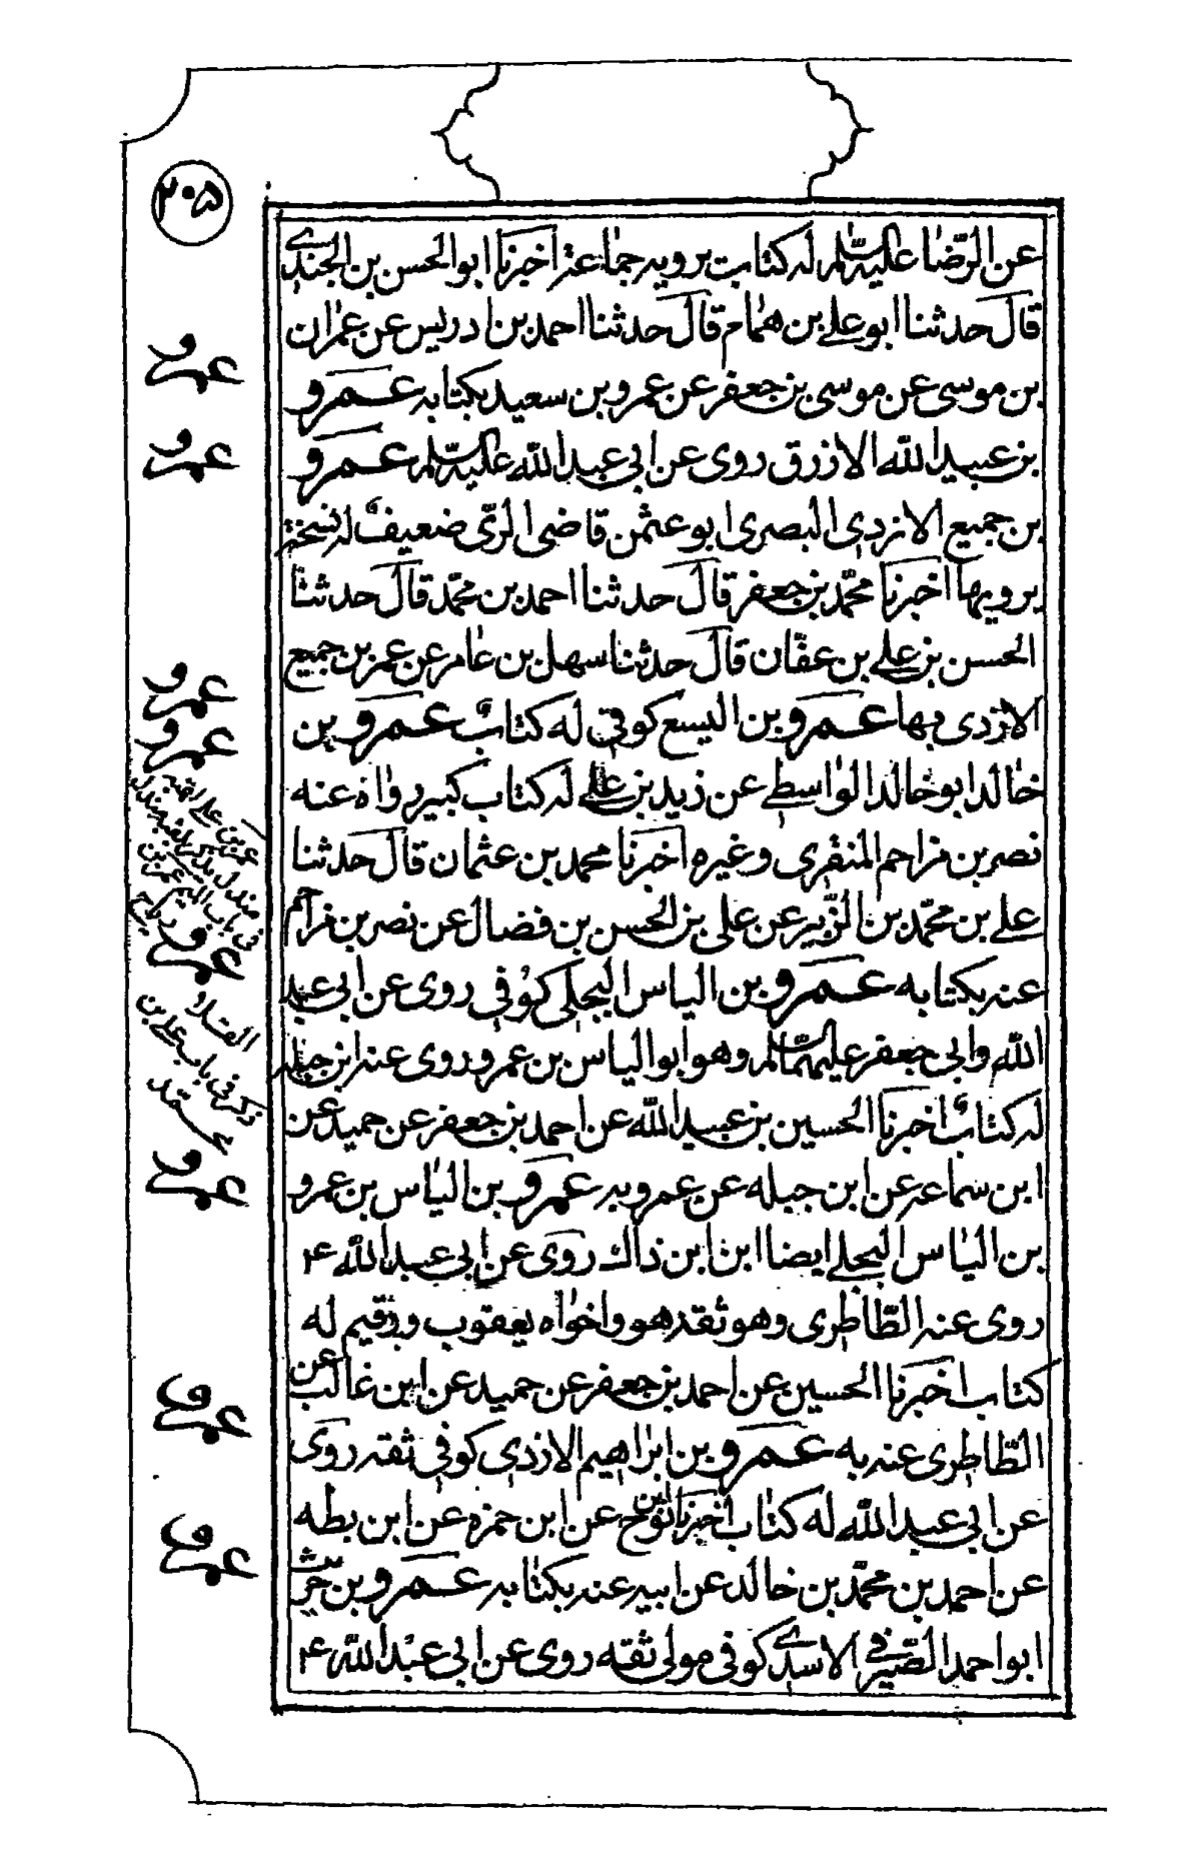 ٢٠٥
عن الرّضا عليه السّلم له كتاب يرويه جماعة اخبرنا ابو الحسن بن الجندى
قال حدثنا ابو على بن همام قال حدثنا احمد بن ادريس عن عمران
بن موسى عن موسى بن جعفر عن عمرو بن سعيد بكتابه عمرو
بن عبيد الله الازرق روى عن ابى عبد الله عليه السّلم عمرو
بن جميع الازدى البصرى ابو عثمن قاضى الرّى ضعيف له نسخة
يرويها اخبرنا محمّد بن جعفر قال حدثنا احمد بن محمّد قال حدثنا
الحسن بن على بن عفّان قال حدثنا سهل بن عامر عن عمر بن جميع
الازدى بها عمرو بن اليسع كوفى له كتابٌ عمرو بن
خالد ابو خالد الواسطى عن زيد بن على له كتاب كبير رواه عنه
نصر بن مزاحم المنقرى وغيره اخبرنا محمد بن عثمان قال حدثنا
على بن محمّد بن الزّبير عن على بن الحسن بن فضال عن نصر بن مزاحم
عنه بكتابه عمرو بن الياس البجلى كوفى روى عن ابى عبد
الله وابى جعفر عليهما السّلم وهو ابو الياس بن عمرو روى عنه ابن جبله
له كتابٌ اخبرنا الحسين بن عبيد الله عن احمد بن جعفر عن حميد عن
ابن سماعه عن ابن جبله عن عمرو به عمرو بن الياس بن عمرو
بن الياس البجلى ايضا ابن ابن ذاك روى عن ابى عبد الله ع
روى عنه الطّاطرى وهو ثقه هو واخواه يعقوب ورقيم له
كتاب اخبرنا الحسين عن احمد بن جعفر عن حميد عن ابن غالب عن
الطّاطرى عنه به عمرو بن ابراهيم الازدى كوفى ثقه روى
عن ابى عبد الله له كتاب اخبرنا ابن نوح عن ابن حمزه عن ابن بطه
عن احمد بن محمّد بن خالد عن ابيه عنه بكتابه عمرو بن حريث
ابو احمد الصّيرفى الاسدى كوفى مولى ثقه روى عن ابى عبد الله ع
عمرو
عمرو
عمرو
عمرو
عمرو
عمرو
عمرو
عمرو